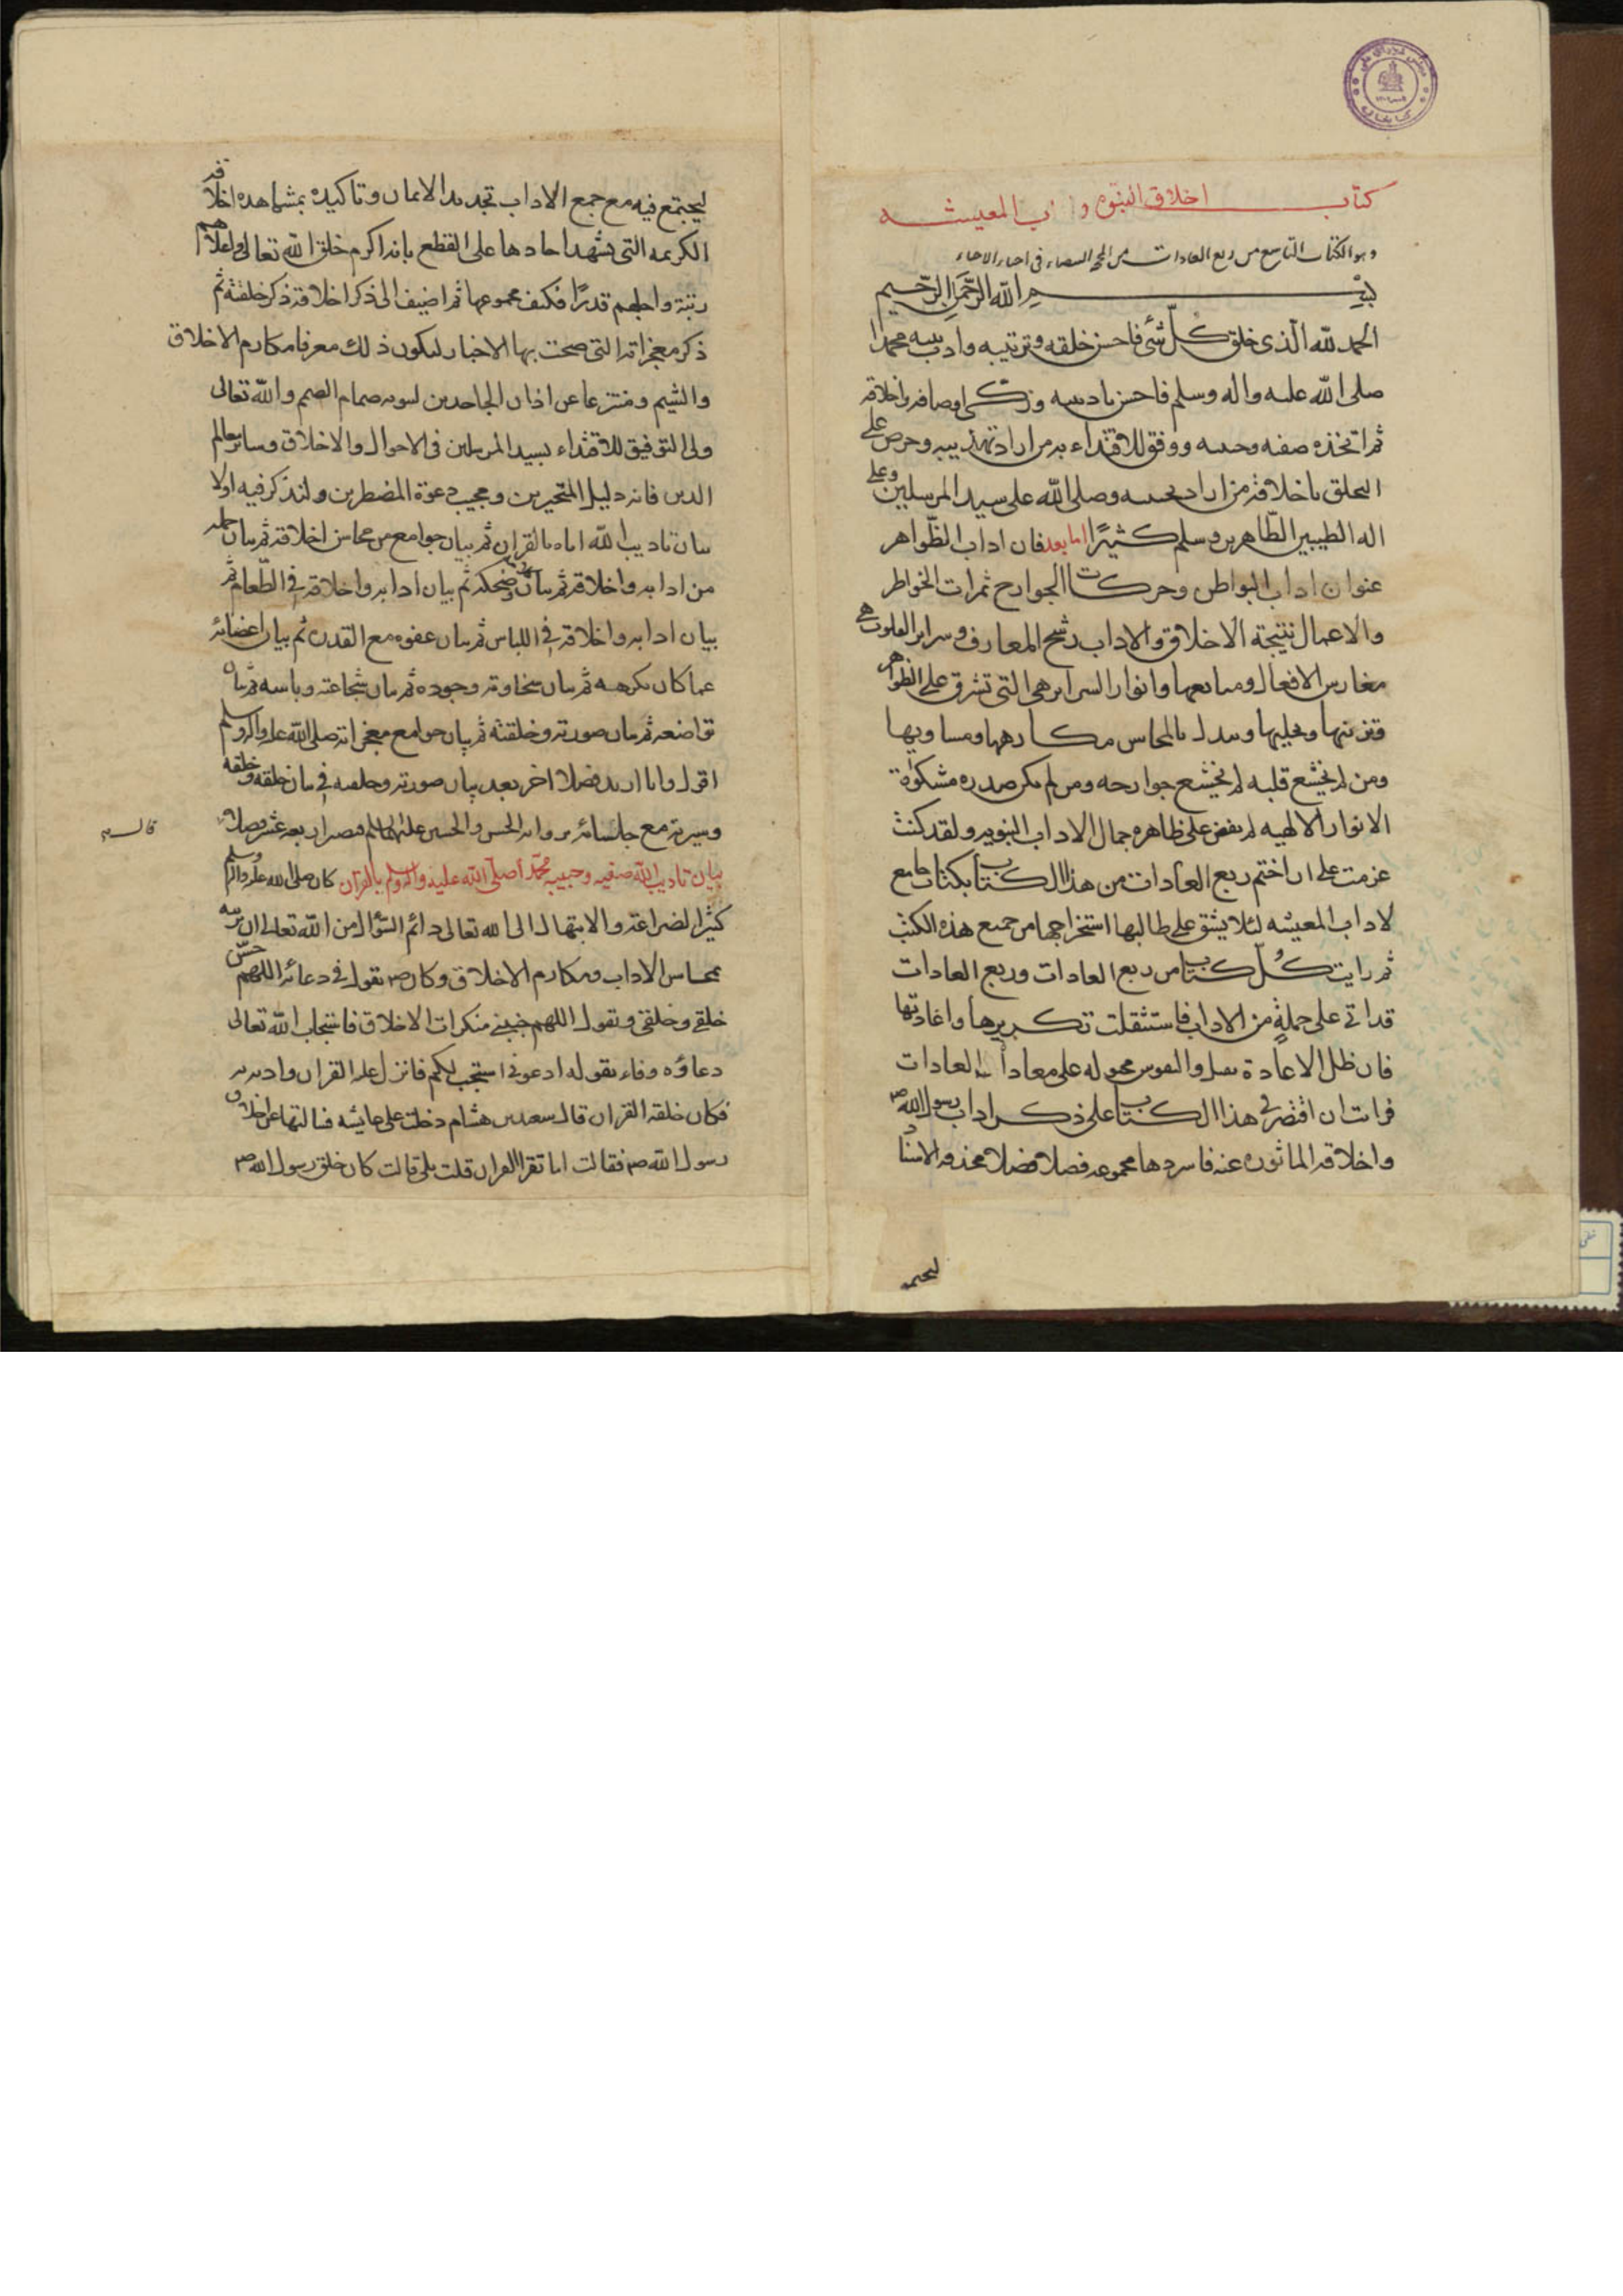 كتاب اخلاق النبوه و اب المعيشه
وهو الكتاب التاسع من ربع العادات من المحجة البيضاء فى احياء الاحياء
بسم الله الرحمن الرحيم
الحمد لله الذى خلق كل شئ فاحسن خلقه وترتيبه وادب نبيه محمدا
صلى الله عليه واله وسلم فاحسن تاديبه وزكى اوصافه واخلاقه
ثم اتخذه صفيه وحبيبه ووفق للاقتداء به من اراد تهذيبه وحرم على
التخلق باخلاقه من اراد تخييبه وصلى الله على سيد المرسلين وعلى
اله الطيبين الطاهرين وسلم كثيرًا اما بعد فان اداب الظواهر
عنوان اداب البواطن وحركات الجوارح ثمرات الخواطر
والاعمال نتيجة الاخلاق والاداب رشح المعارف وسراير القلوب هى
مغارس الافعال ومنابعها وانوار السراير هى التى تشرق على الظواهر
فتزينها وتحليها وتبدل بالمحاسن مكارهها ومساويها
ومن لم يخشع قلبه لم يخشع جوارحه ومن لم يكن صدره مشكوة
الانوار الالهيه لم يفض على ظاهره جمال الاداب النبويه ولقد كنت
عزمت على ان اختم ربع العادات من هذا الكتاب بكتاب جامع
لاداب المعيشه لئلا يشق على طالبها استخراجها من جميع هذه الكتب
ثم رايت كل كتاب من ربع العادات وربع العادات
قد اتى على جملةٍ من الاداب فاستثقلت تكريرها واعادتها
فان طلب الاعادة ثقيل والنفوس مجبوله على معاداة المعادات
فرايت ان اقتصر فى هذا الكتاب على ذكر اداب رسول الله ص
واخلاقه الماثوره عنه فاسردها مجموعه فصلا فصلا محذوفه الاسناد
ليجتمع
ليجتمع فيه مع جمع الاداب تجديد الايمان وتاكيده بمشاهدة اخلاقه
الكريمه التى يشهد احادها على القطع بانه اكرم خلق الله تعالى واعلاهم
رتبة واجلهم قدرًا فكيف مجموعها ثم اضيف الى ذكر اخلاقه ذكر خلقته ثم
ذكر معجزاته التى صحت بها الاخبار ليكون ذلك معرفا مكارم الاخلاق
والشيم ومنتزعا عن اذان الجاحدين لنبوته صمام الصمم والله تعالى
ولى التوفيق للاقتداء بسيد المرسلين فى الاحوال والاخلاق وساير معالم
الدين فانه دليل المتحيرين ومجيب دعوة المضطرين ولنذكر فيه اولا
بيان تاديب الله اياه بالقران ثم بيان جوامع من محاسن اخلاقه ثم بيان جمله
من ادابه واخلاقه ثم بيان كلامه وضحكه ثم بيان ادابه واخلاقه فى الطعام ثم
بيان ادابه واخلاقه فى اللباس ثم بيان عفوه مع القدره ثم بيان اغضائه
عما كان يكرهه ثم بيان سخاوته وجوده ثم بيان شجاعته وباسه ثم بيان
تواضعه ثم بيان صورته وخلقته ثم بيان جوامع معجزاته صلى الله عليه واله وسلم
اقول وانا ازيد فصلا اخر بعد بيان صورته وخلقته فى بيان خلقه وخلقه
وسيرته مع جلسائه بروايه الحسن والحسين عليهما السلم فيصير اربعه عشر فصلا
بيان تاديب الله صفيه وحبيبه محمد اصلى الله عليه واله وسلم بالقران كان صلى الله عليه واله وسلم
كثير الضراعة والابتهال الى الله تعالى دائم السؤال من الله تعالى ان يزينه
بمحاسن الاداب ومكارم الاخلاق وكان ص يقول فى دعائه اللهم حسن
خلقى وخلقى ويقول اللهم جنبنى منكرات الاخلاق فاستجاب الله تعالى
دعاؤه وفاء بقوله ادعونى استجب لكم فانزل عليه القران وادبه به
فكان خلقه القران قال سعد بن هشام دخلت على عايشه فسالتها عن اخلاق
رسول الله ص فقالت اما تقرا القران قلت بلى قالت كان خلق رسول الله ص